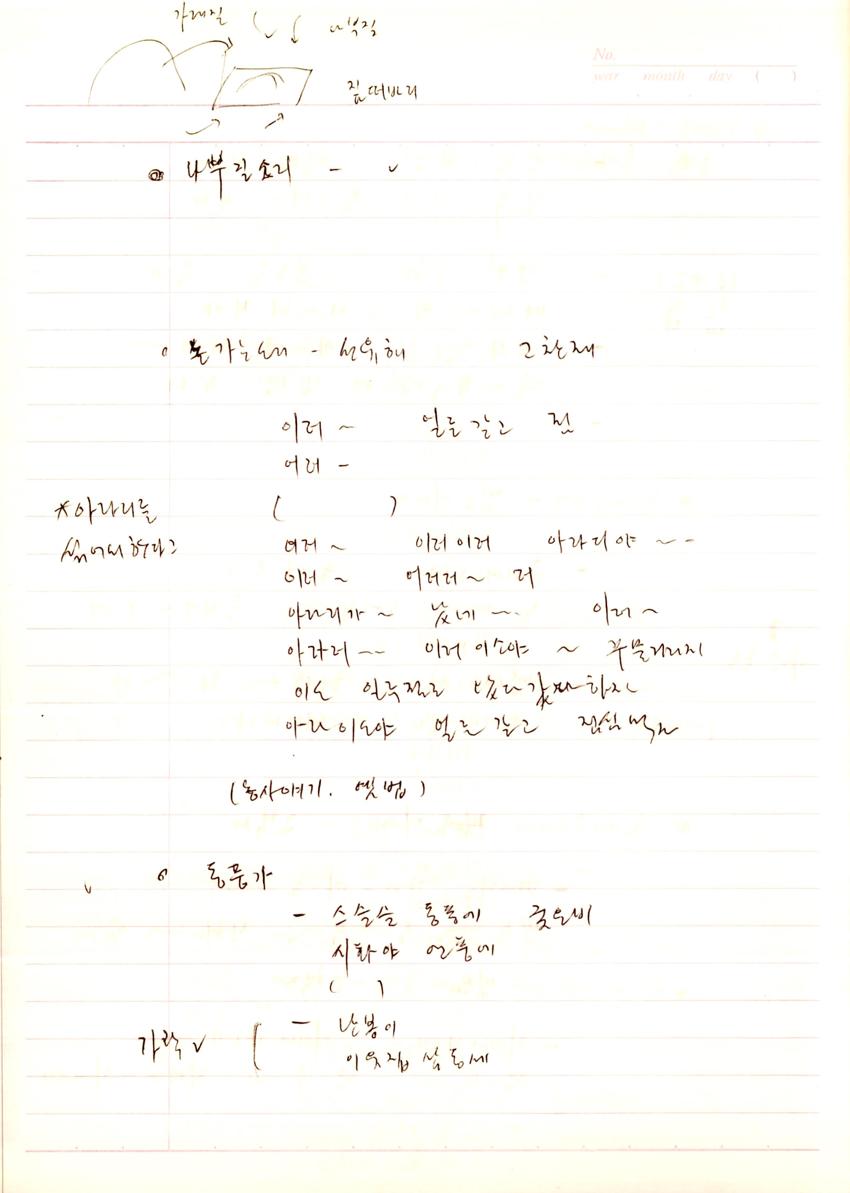 가래질 나부질
No.
year month day ( )
짚떠바리
나부질소리 - ✓
논가는소리 - 선유해 고찬재
이러 ~ 얼른 갈고 점
어러 -
*아라리를 ( )
섞어서 하다고 어러 ~ 이러이러 아라리야 ~ -
이러 ~ 어러러 ~ 러
아라리가 ~ 났네 ~. 이러 ~
아라리 ~~ 이러 이소야 ~ 꾸물거리지
이소 얼른 갈고 하자
아라 이소야 얼른 갈고 점심먹자
(농사얘기. 옛법)
✓ 동풍가
- 스슬슬 동풍에 궂은비
시화야 연풍에
( )
- 난봉이
가락 ✓ 이웃집 삼동세